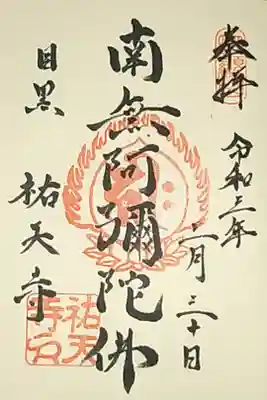 奉拝
令和三年
三月三十日
南無阿彌陀佛
目黒
祐天寺
祐天
寺印